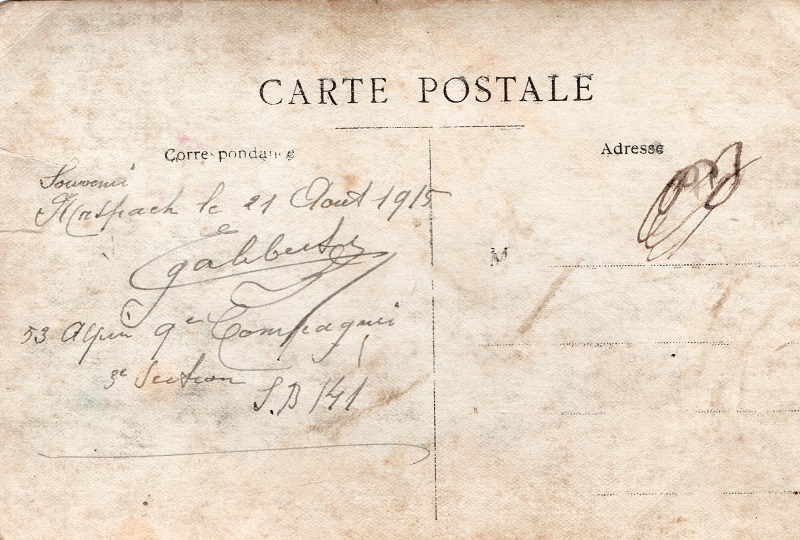 CARTE POSTALE
Correspondance
Adresse
Souvenir
le 21 Aout 1915
M
53 Alpin 9e Compagnie
3e Section
S.B 141